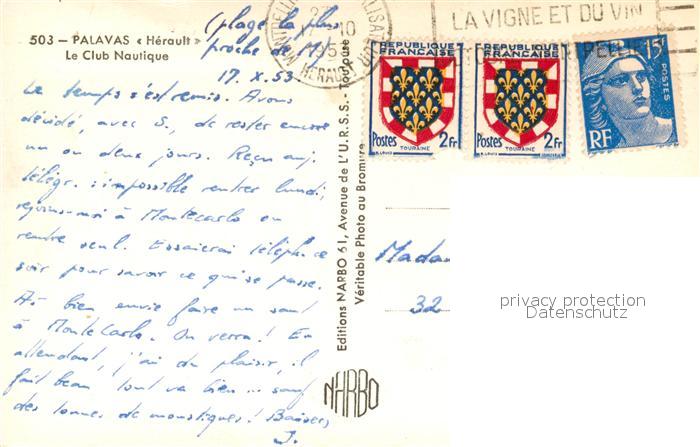 503 – PALAVAS « Hérault »
Le Club Nautique
(plage la plus
proche de M)
17. X. 53.
Le temps s'est remis. Avons
décidé, avec S., de rester encore
un ou deux jours. Reçu auj.
télégr. : impossible rentrer lundi,
rejoins-moi à Montecarlo ou
rentre seul. Essaierai téléph. ce
soir pour savoir ce qui se passe.
Ai bien envie faire un saut
à MonteCarlo. On verra ! En
attendant, j'ai du plaisir, il
fait beau tout va bien ... sauf
des tonnes de moustiques ! Baisers
J.
Editions NARBO 61, Avenue de l'U.R.S.S. - Toulouse
Véritable Photo au Bromure
NARBO
LA VIGNE ET DU VIN
HERAULT
REPUBLIQUE FRANÇAISE
Postes 2Fr
TOURAINE
REPUBLIQUE FRANÇAISE
Postes 2Fr
TOURAINE
15F
POSTES
RF
Madam
32
privacy protection
Datenschutz